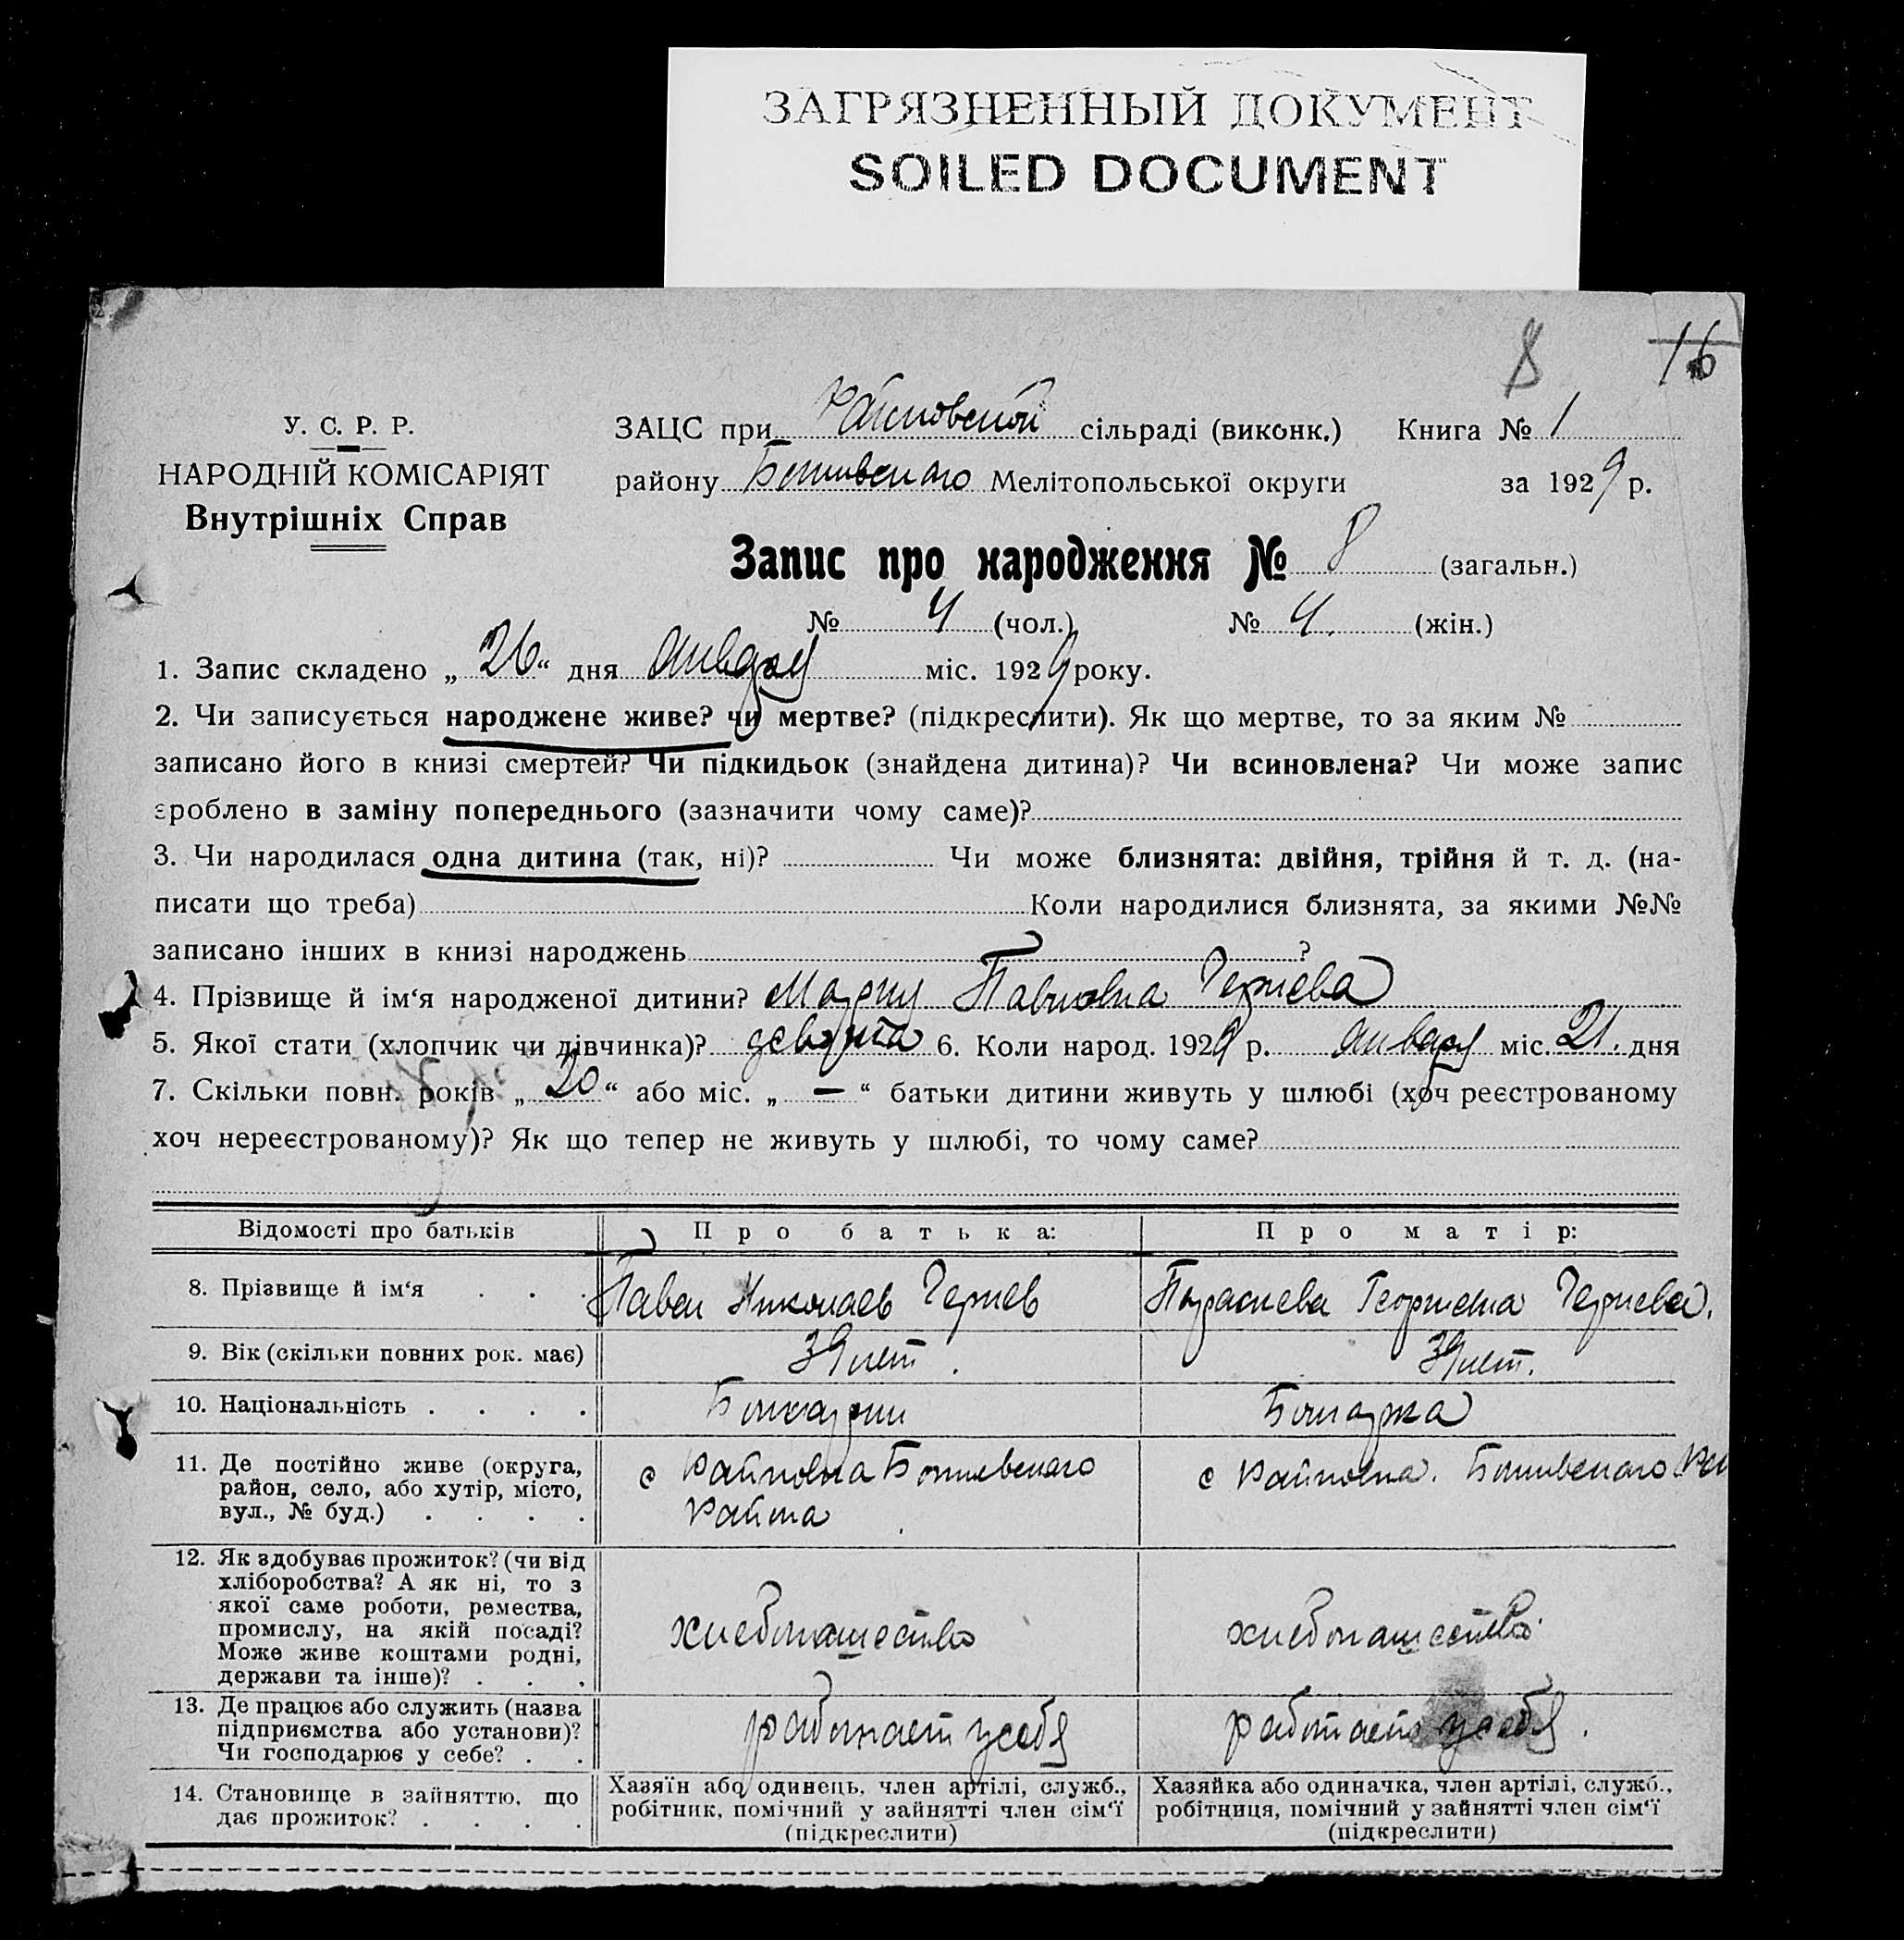 ЗАГРЯЗНЕННЫЙ ДОКУМЕНТ
SOILED DOCUMENT
8 16
У. С. Р. Р.
НАРОДНІЙ КОМІСАРІЯТ
Внутрішніх Справ
ЗАЦС при Райновской сільраді (виконк.) Книга № 1
району Ботиевского Мелітопольської округи за 1929 р.
Запис про народження № 8 (загальн.)
№ 4 (чол.) № 4. (жін.)
1. Запис складено „26“ дня января міс. 1929 року.
2. Чи записується народжене живе? чи мертве? (підкреслити). Як що мертве, то за яким №
записано його в книзі смертей? Чи підкидьок (знайдена дитина)? Чи всиновлена? Чи може запис
зроблено в заміну попереднього (зазначити чому саме)?
3. Чи народилася одна дитина (так, ні)? Чи може близнята: двійня, трійня й т. д. (на-
писати що треба) Коли народилися близнята, за якими №№
записано інших в книзі народжень ?
4. Прізвище й ім‘я народженої дитини? Мария Павловна Чернева
5. Якої стати (хлопчик чи дівчинка)? девочка 6. Коли народ. 1929 р. января міс. 21. дня
7. Скільки повн. років „20“ або міс. „—“ батьки дитини живуть у шлюбі (хоч реєстрованому
хоч нереєстрованому)? Як що тепер не живуть у шлюбі, то чому саме?
Відомості про батьків Про батька: Про матір:
8. Прізвище й ім‘я . . . Павел Николаев Чернев Параскева Георгиевна Чернева.
9. Вік (скільки повних рок. має) 39 лет. 39 лет.
10. Національність . . . . Болгарин Болгарка
11. Де постійно живе (округа,
район, село, або хутір, місто,
вул., № буд.) . . . .
с Райновка Ботиевского
Района
с Райновка. Ботиевского
12. Як здобуває прожиток? (чи від
хліборобства? А як ні, то з
якої саме роботи, ремества,
промислу, на якій посаді?
Може живе коштами родні,
держави та інше)? . . .
хлебопашество хлебопашество
13. Де працює або служить (назва
підприємства або установи)?
Чи господарює у себе? . .
работает у себя работает у себя.
14. Становище в зайняттю, що
дає прожиток? . . . .
Хазяїн або одинець, член артілі, служб.,
робітник, помічний у зайнятті член сім‘ї
(підкреслити)
Хазяйка або одиначка, член артілі, служб.,
робітниця, помічний у зайнятті член сім‘ї
(підкреслити)